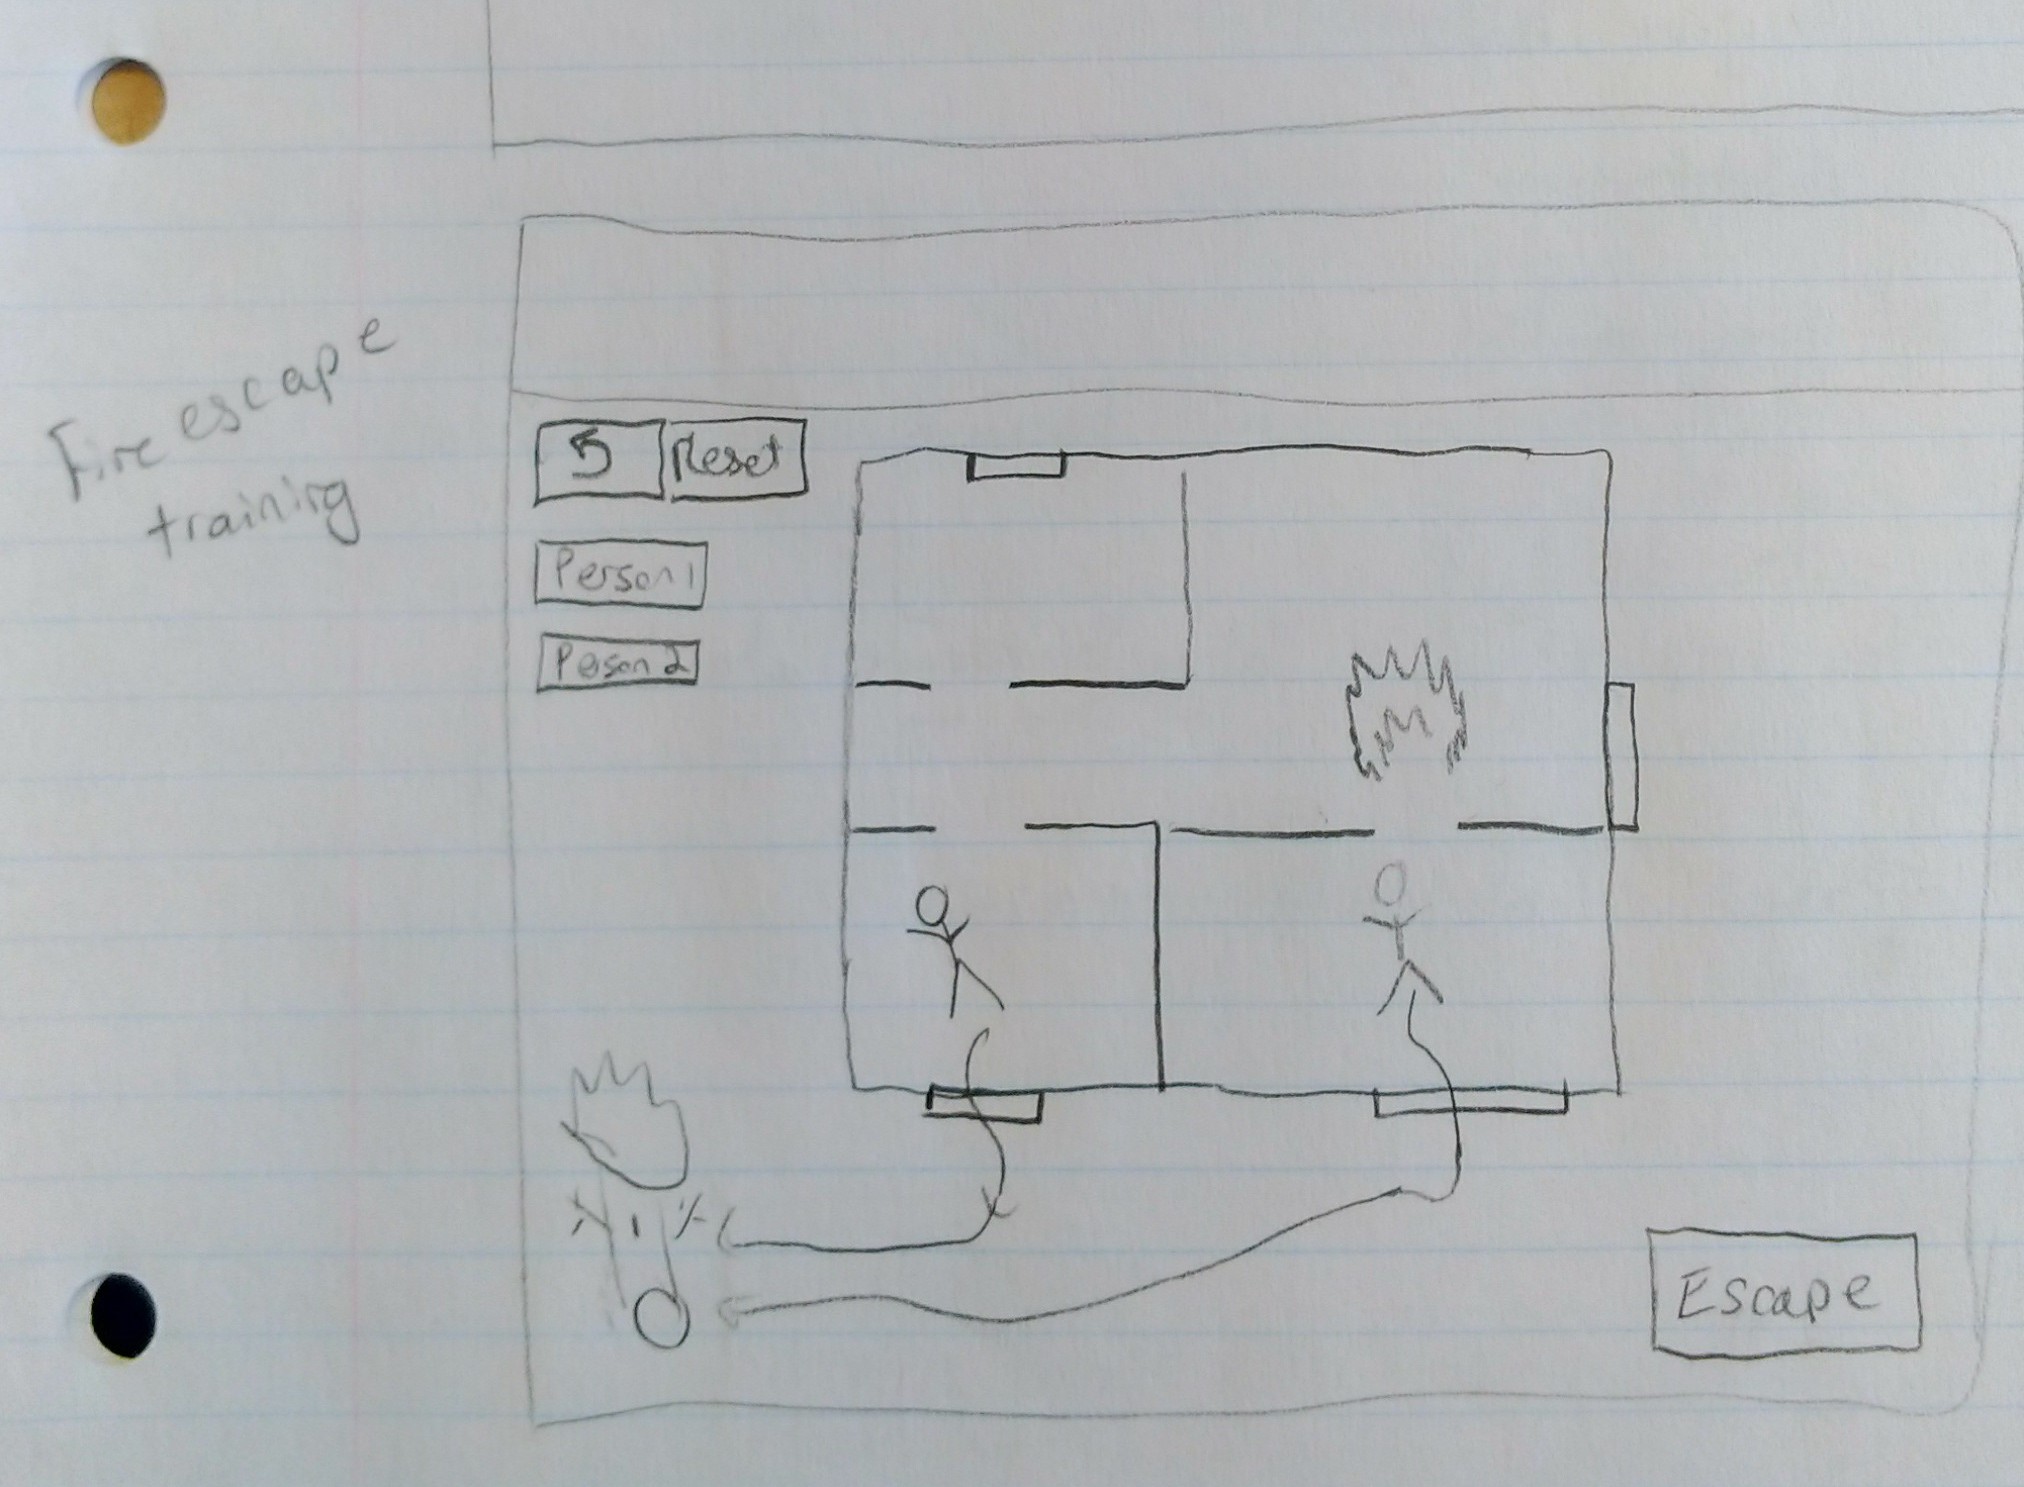 Fire escape
training
Reset
Person 1
Person 2
Escape